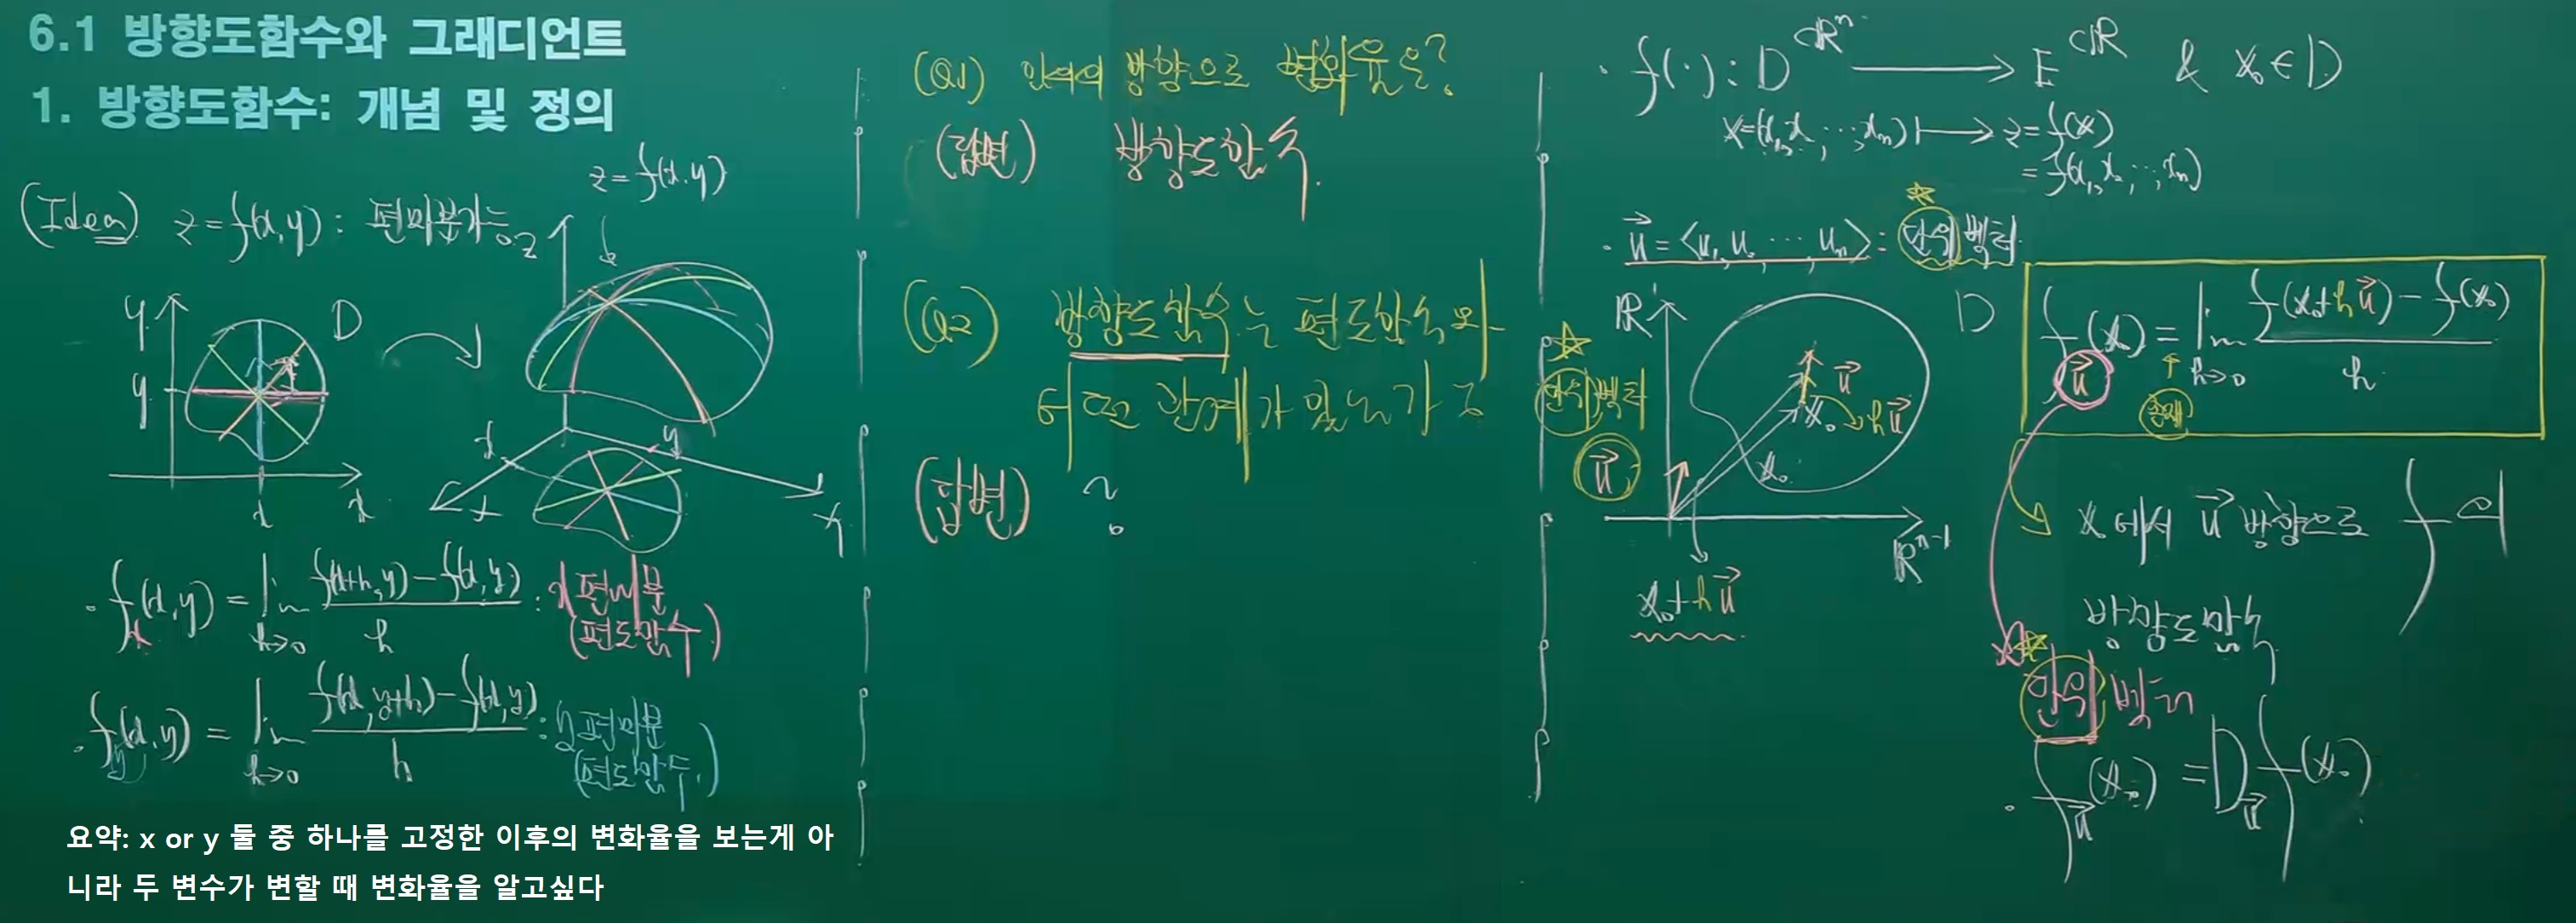 6.1 방향도함수와 그래디언트
1. 방향도함수: 개념 및 정의
(Idea) z=f(x,y): 편미분가능
z=f(x,y)
y
D
y
x
x
z
x
y
x
y
· fx(x,y) = lim h→0 f(x+h,y)-f(x,y) / h : x편미분
(편도함수)
· fy(x,y) = lim h→0 f(x,y+h)-f(x,y) / h : y편미분
(편도함수)
요약: x or y 둘 중 하나를 고정한 이후의 변화율을 보는게 아
니라 두 변수가 변할 때 변화율을 알고싶다
(Q1) 임의의 방향으로 변화율은?
(답변) 방향도함수.
(Q2) 방향도함수는 편도함수와
어떤 관계가 있는가?
(답변) ?
· f(·): D⊂ℝⁿ → E⊂ℝ & x₀∈D
x=(x₁,x₂,…,xₙ) ↦ z=f(x)
=f(x₁,x₂,…,xₙ)
· u⃗=⟨u₁,u₂,…,uₙ⟩: 단위벡터
ℝ¹
D
단위벡터
u⃗
u⃗
x₀
hu⃗
x₀
ℝⁿ⁻¹
x₀+hu⃗
f_u⃗(x₀) = lim h→0 f(x₀+hu⃗)-f(x₀) / h
존재
x₀에서 u⃗ 방향으로 f의
방향도함수
단위벡터
· f_u⃗(x₀) = D_u⃗ f(x₀)